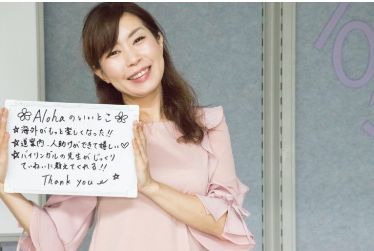 Alohaのいいとこ
☆海外がもっと楽しくなった!!
☆道案内・人助けができて嬉しい♡
☆バイリンガルの先生がじっくり
ていねいに教えてくれる!!
Thank you